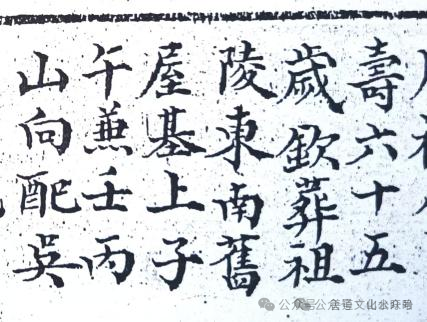 壽六十五
歲欽葬祖
陵東南舊
屋基上子
午兼壬丙
山向配吳
公众号